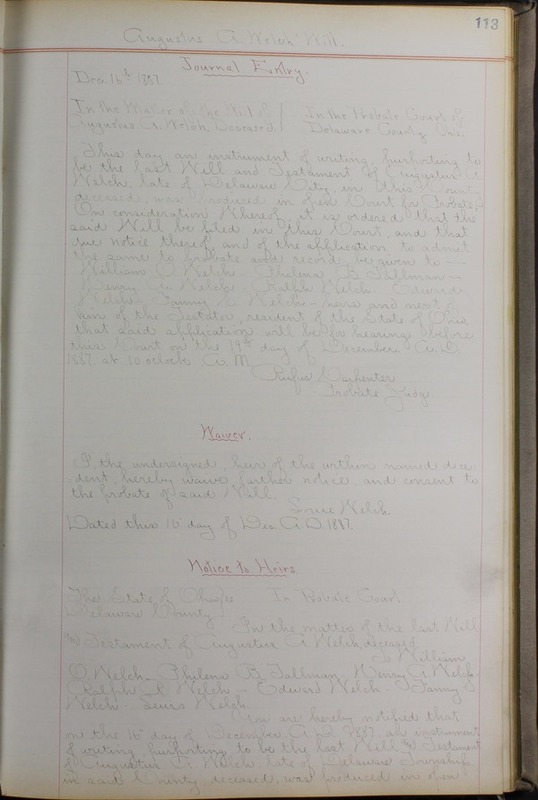 113
Augustus A. Welch Will.
Journal Entry.
Dec. 16th 1887.
In the Matter of the Will of
Augustus A. Welch, Deceased.
In the Probate Court of
Delaware County, Ohio
This day an instrument of writing, purporting to
be the last Will and Testament of Augustus A
Welch, late of Delaware City, in this County
deceased, was produced in open Court for Probate.
On consideration whereof, it is ordered that the
said Will be filed in this Court, and that
due notice thereof, and of the application to admit
the same to probate and record, be given to
William O. Welch - Philena B. Tallman -
Henry A. Welch - Ralph Welch - Edward
Welch - Fanny S. Welch - heirs and next of
kin of the Testator, resident of the State of Ohio
that said application will be for hearing before
this Court on the 19th day of December A.D
1887. at 10 oclock A.M.
Rufus Carpenter
Probate Judge
Waiver.
I, the undersigned, heir of the within named dece
dent, hereby waive further notice, and consent to
the probate of said Will.
Welch.
Dated this 16" day of Dec A.D. 1887.
Notice to Heirs.
The State of Ohio, ss In Probate Court
Delaware County
In the matter of the last Will
and Testament of Augustus A. Welch, deceased
To William
O. Welch - Philena B. Tallman, Henry A. Welch -
Ralph Welch - Edward Welch - Fanny
Welch - Welch
You are hereby notified that
on the 16" day of December, A.D. 1887, an instrument
of writing, purporting to be the last Will and Testament
of Augustus A. Welch late of Delaware Township
in said County, deceased, was produced in open